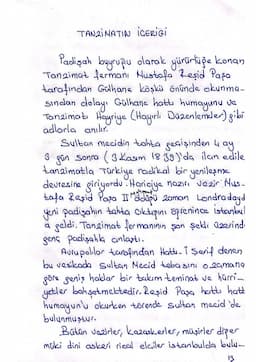 TANZİMATIN İÇERİĞİ
Padişah buyruğu olarak yürürlüğe konan
Tanzimat fermanı Mustafa Reşid Paşa
tarafından Gülhane köşkü önünde okunma-
sından dolayı Gülhane hattı humayunu ve
Tanzimatı Hayriye (Hayırlı Düzenlemeler) gibi
adlarla anılır.
Sultan mecidin tahta geçişinden 4 ay
3 gün sonra (3 Kasım 1839)'da ilan edile
tanzimatla Türkiye radikal bir yenileşme
devresine giriyordu. Hariciye nazırı vezir Mus-
tafa Reşid Paşa II zaman Londradaydı
yeni padişahın tahta çıktığını öğrenince istanbul
a geldi. Tanzimat fermanının son şekli üzerinde
genç padişahla anlaştı.
Avrupalılar tarafından Hattı İ Şerif denen
bu vesikada Sultan Mecid tebasını o zamana
göre geniş haklar bir takım teminat ve hürri-
yetler bahşetmektedir. Reşid Paşa hattı hatt
humayun'u okurken törende sultan mecid'de
bulunmuştur.
Bütün vezirler, kazaskerler, müşirler diğer
mülki dini askeri rical elciler istanbulda bulu-
13